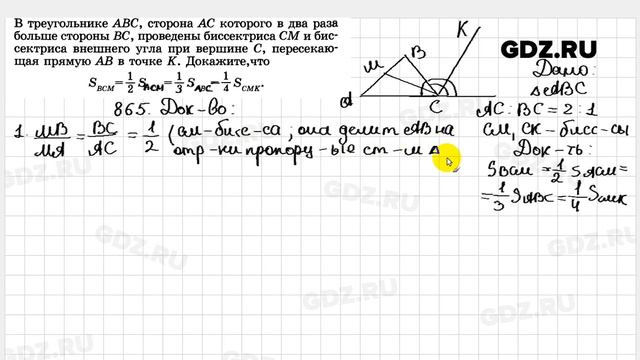 В треугольнике ABC, сторона AC которого в два раза
больше стороны BC, проведены биссектриса CM и бис-
сектриса внешнего угла при вершине C, пересекаю-
щая прямую AB в точке K. Докажите,что
S_BCM = 1/2 S_ACM = 1/3 S_ABC = 1/4 S_CMK.
K
B
M
A
C
GDZ.RU
Дано:
△ABC
AC : BC = 2 : 1
CM, CK - бисс-сы
Док-ть:
S_BCM = 1/2 S_ACM =
= 1/3 S_ABC = 1/4 S_CMK
865. Док-во:
1. MB/MA = BC/AC = 1/2 (CM-бисс-са ; она делит AB на
отр-ки пропорц-ые ст-м △